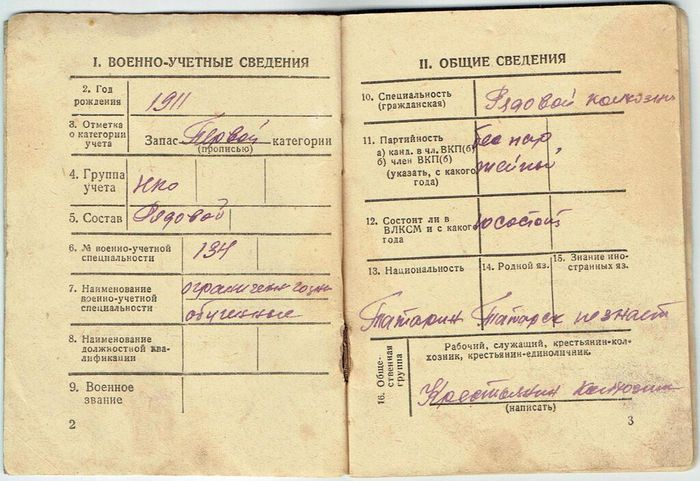 I. ВОЕННО-УЧЕТНЫЕ СВЕДЕНИЯ
2. Год
рождения
1911
3. Отметка
о категории
учета
Запас Первой категории
(прописью)
4. Группа
учета
нко
5. Состав
Рядовой
6. № военно-учетной
специальности
134
7. Наименование
военно-учетной
специальности
ограничен годн
обученные
8. Наименование
должностной ква-
лификации
9. Военное
звание
2
II. ОБЩИЕ СВЕДЕНИЯ
10. Специальность
(гражданская)
Рядовой колхозн
11. Партийность
а) канд. в чл. ВКП(б)
б) член ВКП(б)
(указать, с какого
года)
бес пар
тейный
12. Состоит ли в
ВЛКСМ и с какого
года
13. Национальность
14. Родной яз.
15. Знание ино-
странных яз.
Татарин Татарск не знает
16. Обще-
ственная
группа
Рабочий, служащий, крестьянин-кол-
хозник, крестьянин-единоличник.
Крестьянин
(написать)
3